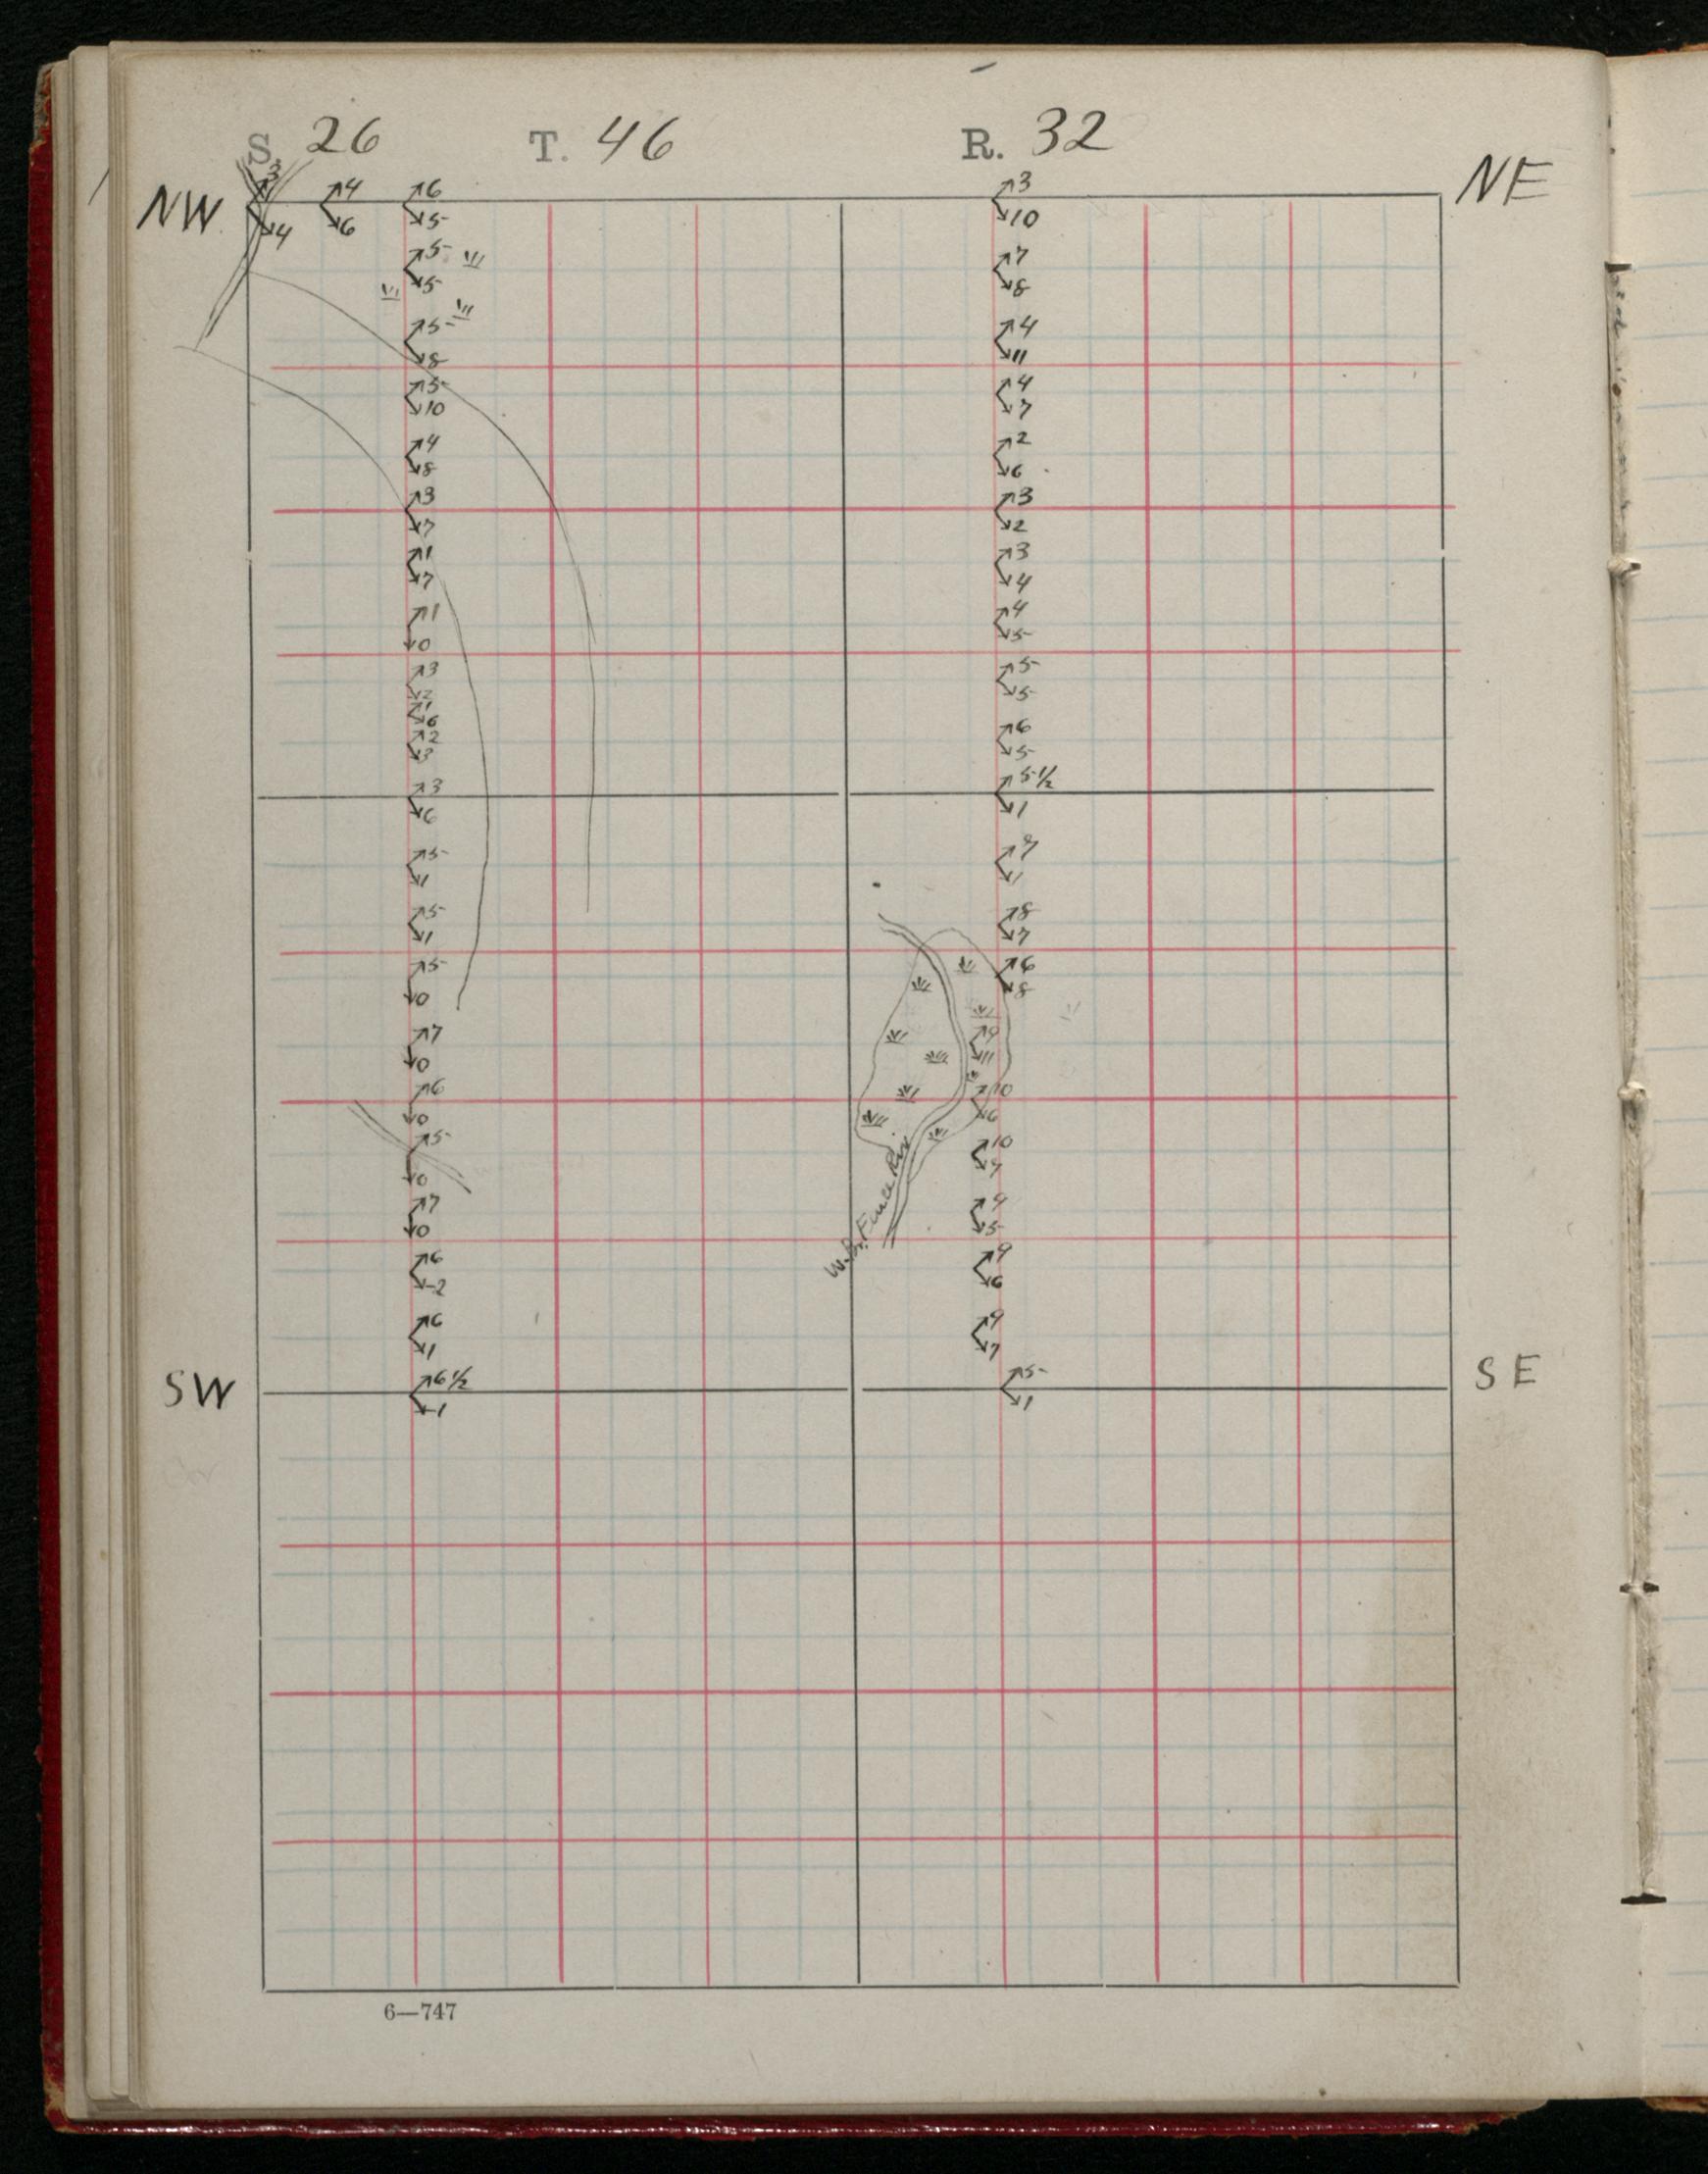 S. 26 T. 46 R. 32
NW NE
3 4 6 3
4 6 5 10
5 7
5 8
5 4
8 11
5 4
10 7
4 2
8 6
3 3
7 2
1 3
7 4
1 4
0 5
3 5
2 5
1
6
2 6
3 5
3 5 1/2
6 1
5 7
1 1
5 8
1 7
5 6
0 8
7 9
0 11
6 10
0 6
5 10
0 7
7 9
0 5
6 9
-2 6
6 9
1 7
W. B. Riv
SW SE
6 1/2 5
-1 1
6—747